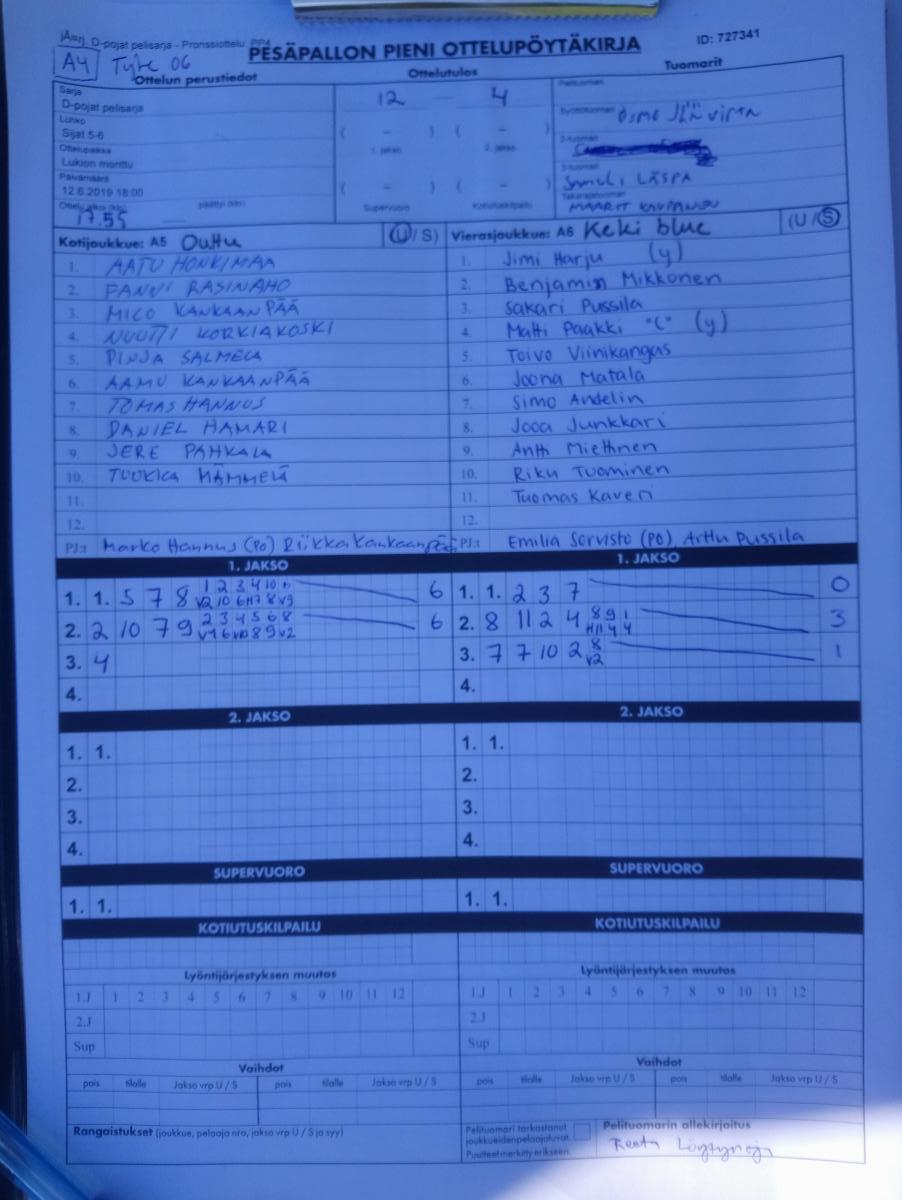 D-pojat pelisarja - Pronssiottelu PP4
PESÄPALLON PIENI OTTELUPÖYTÄKIRJA
ID: 727341
A4
Ottelun perustiedot
Ottelutulos
Tuomarit
Sarja
D-pojat pelisarja
Lohko
Sijat 5-6
Ottelupaikka
Lukion monttu
Päivämäärä
12.6.2019 18:00
17.55
12 - 4
( - ) ( - )
1. jakso 2. jakso
( - ) ( - )
Supervuoro Kotiutuskilpailu
Pelituomari
Syöttötuomari
2-tuomari
3-tuomari
SAMULI LÄSPA
Takarajatuomari
MAARIT
Kotijoukkue: A5 Outtu (U / S)
1. AATU HONKIMAA
2. FANNI RASINAHO
3. MICO KANKAANPÄÄ
4. NUUTTI KORKIAKOSKI
5. PINJA SALMELA
6. AAMU KANKAANPÄÄ
7. TOMAS HANNUS
8. DANIEL HAMARI
9. JERE PAHKALA
10. TUUKKA HÄMMELÄ
11.
12.
PJ:t Marko Hannus (PO) Riikka Kankaanpää
Vierasjoukkue: A6 Keki blue (U / S)
1. Jimi Harju (y)
2. Benjamin Mikkonen
3. Sakari Pussila
4. Matti Paakki "C" (y)
5. Toivo Viinikangas
6. Joona Matala
7. Simo Andelin
8. Jooa Junkkari
9. Antti Miettinen
10. Riku Tuominen
11. Tuomas Kaveri
12.
PJ:t Emilia Sorvisto (PO), Arttu Pussila
1. JAKSO
1. 1. 5 7 8 1 2 3 4 10 6
V2 10 6 H7 8 V9
2. 2 10 7 9 2 3 4 5 6 8 6
V4 6 V10 8 9 V2
3. 4
4.
1. JAKSO
1. 1. 2 3 7 0
2. 8 11 2 4 8 9 1 3
H11 4 4
3. 7 7 10 2 8 1
V2
4.
2. JAKSO
1. 1.
2.
3.
4.
2. JAKSO
1. 1.
2.
3.
4.
SUPERVUORO
1. 1.
SUPERVUORO
1. 1.
KOTIUTUSKILPAILU
KOTIUTUSKILPAILU
Lyöntijärjestyksen muutos
1.J 1 2 3 4 5 6 7 8 9 10 11 12
2.J
Sup
Lyöntijärjestyksen muutos
1.J 1 2 3 4 5 6 7 8 9 10 11 12
2.J
Sup
Vaihdot
pois tilalle Jakso vrp U / S pois tilalle Jakso vrp U / S
Vaihdot
pois tilalle Jakso vrp U / S pois tilalle Jakso vrp U / S
Rangaistukset (joukkue, pelaaja nro, jakso vrp U / S ja syy)
Pelituomari tarkastanut
joukkueiden pelaajaluvat.
Puutteet merkitty erikseen.
Pelituomarin allekirjoitus
Reeta